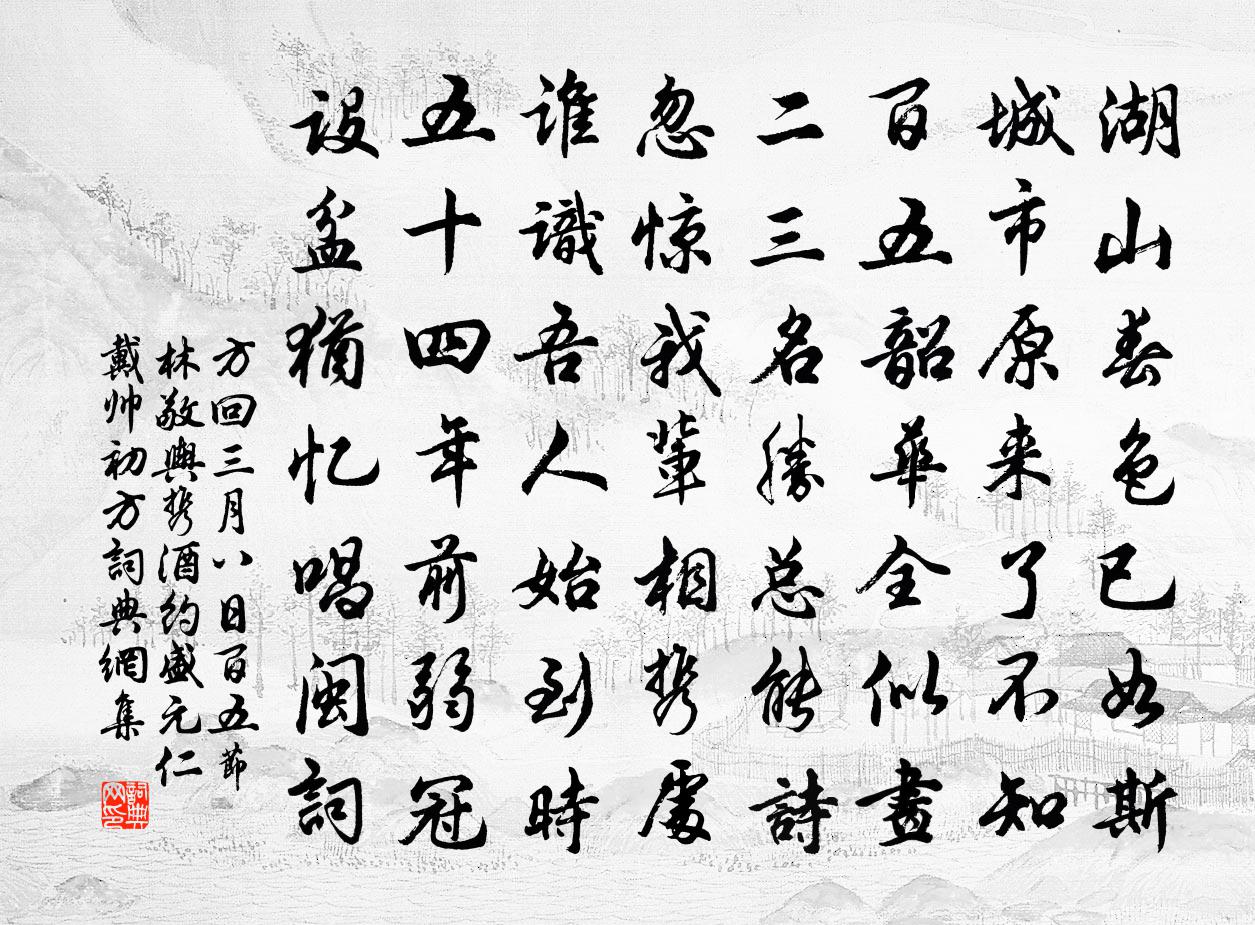 湖山春色已如斯
城市原来了不知
百五韶華全似畫
二三名勝总能詩
忽惊我輩相携處
谁識吾人始到時
五十四年前弱冠
設盆猶忆唱闽詞
方回三月八日百五節
林敬輿携酒約盛元仁
戴帅初方詞典網集
詞典网印